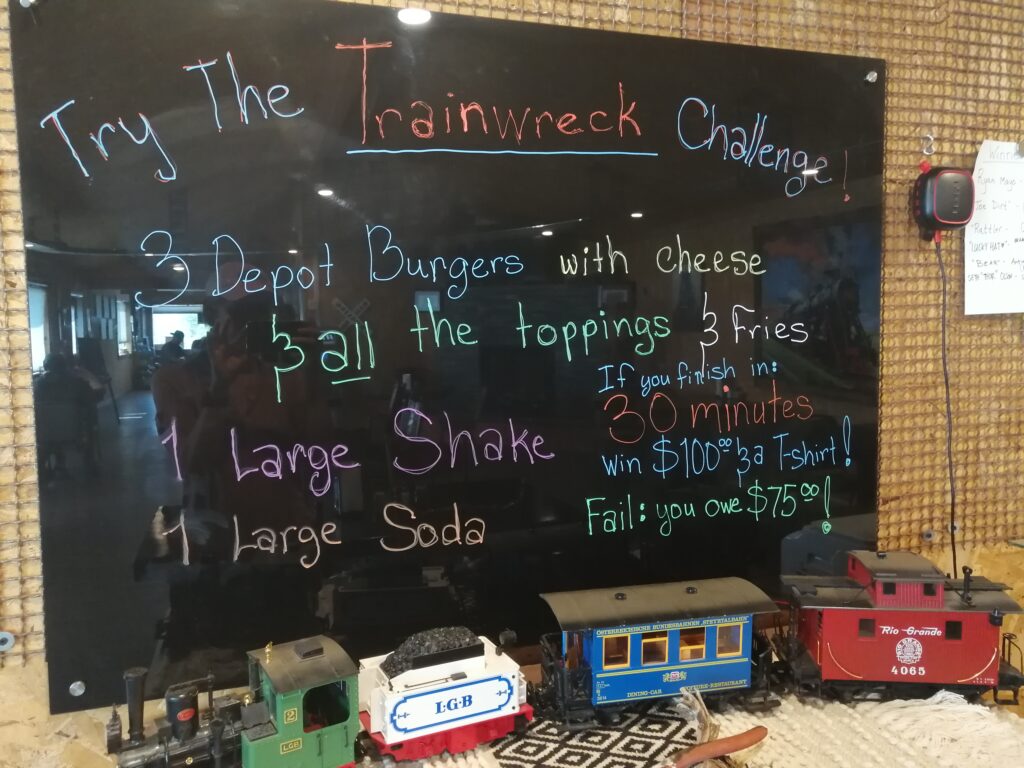 Try The Trainwreck Challenge!
3 Depot Burgers with cheese
& all the toppings & Fries
If you finish in:
30 minutes
1 Large Shake
win $100.00 & a T-shirt!
1 Large Soda
Fail: you owe $75.00!
2
LGB
L·G·B
ÖSTERREICHISCHE BUNDESBAHNEN „STEYRTALBAHN"
DINING-CAR
Rio Grande
4065
Ryan Mays -
"Rattler -
"LUCKY HAT" -
"BEAR" -